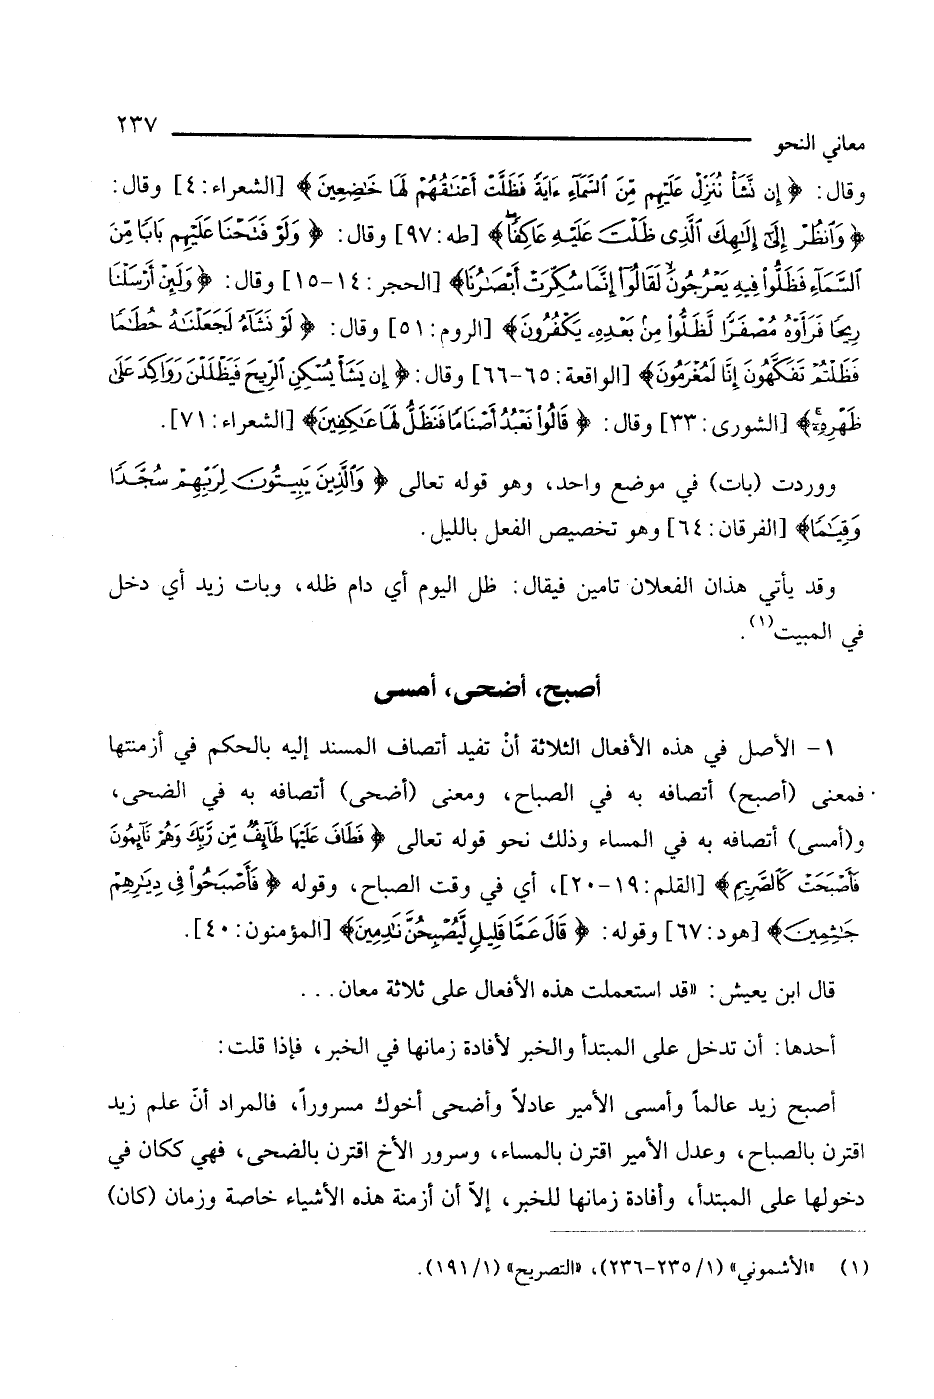 معاني النحو ٢٣٧
وقال: ﴿ إِن نَّشَأْ نُنَزِّلْ عَلَيْهِم مِّنَ ٱلسَّمَآءِ ءَايَةً فَظَلَّتْ أَعْنَٰقُهُمْ لَهَا خَٰضِعِينَ ﴾ [الشعراء: ٤] وقال:
﴿ وَٱنظُرْ إِلَىٰٓ إِلَٰهِكَ ٱلَّذِى ظَلْتَ عَلَيْهِ عَاكِفًا ﴾ [طه: ٩٧] وقال: ﴿ وَلَوْ فَتَحْنَا عَلَيْهِم بَابًا مِّنَ
ٱلسَّمَآءِ فَظَلُّوا۟ فِيهِ يَعْرُجُونَ لَقَالُوٓا۟ إِنَّمَا سُكِّرَتْ أَبْصَٰرُنَا ﴾ [الحجر: ١٤-١٥] وقال: ﴿ وَلَئِنْ أَرْسَلْنَا
رِيحًا فَرَأَوْهُ مُصْفَرًّا لَّظَلُّوا۟ مِنۢ بَعْدِهِۦ يَكْفُرُونَ ﴾ [الروم: ٥١] وقال: ﴿ لَوْ نَشَآءُ لَجَعَلْنَٰهُ حُطَٰمًا
فَظَلْتُمْ تَفَكَّهُونَ إِنَّا لَمُغْرَمُونَ ﴾ [الواقعة: ٦٥-٦٦] وقال: ﴿ إِن يَشَأْ يُسْكِنِ ٱلرِّيحَ فَيَظْلَلْنَ رَوَاكِدَ عَلَىٰ
ظَهْرِهِۦٓ ﴾ [الشورى: ٣٣] وقال: ﴿ قَالُوا۟ نَعْبُدُ أَصْنَامًا فَنَظَلُّ لَهَا عَٰكِفِينَ ﴾ [الشعراء: ٧١].
ووردت (بات) في موضع واحد، وهو قوله تعالى ﴿ وَٱلَّذِينَ يَبِيتُونَ لِرَبِّهِمْ سُجَّدًا
وَقِيَٰمًا ﴾ [الفرقان: ٦٤] وهو تخصيص الفعل بالليل.
وقد يأتي هذان الفعلان تامين فيقال: ظل اليوم أي دام ظله، وبات زيد أي دخل
في المبيت(١).
أصبح، أضحى، أمسى
١- الأصل في هذه الأفعال الثلاثة أنْ تفيد أتصاف المسند إليه بالحكم في أزمنتها
فمعنى (أصبح) أتصافه به في الصباح، ومعنى (أضحى) أتصافه به في الضحى،
و(أمسى) أتصافه به في المساء وذلك نحو قوله تعالى ﴿ فَطَافَ عَلَيْهَا طَآئِفٌ مِّن رَّبِّكَ وَهُمْ نَآئِمُونَ
فَأَصْبَحَتْ كَٱلصَّرِيمِ ﴾ [القلم: ١٩-٢٠]، أي في وقت الصباح، وقوله ﴿ فَأَصْبَحُوا۟ فِى دِيَٰرِهِمْ
جَٰثِمِينَ ﴾ [هود: ٦٧] وقوله: ﴿ قَالَ عَمَّا قَلِيلٍ لَّيُصْبِحُنَّ نَٰدِمِينَ ﴾ [المؤمنون: ٤٠].
قال ابن يعيش: «قد استعملت هذه الأفعال على ثلاثة معان...
أحدها: أن تدخل على المبتدأ والخبر لأفادة زمانها في الخبر، فإذا قلت:
أصبح زيد عالماً وأمسى الأمير عادلاً وأضحى أخوك مسروراً، فالمراد أنّ علم زيد
اقترن بالصباح، وعدل الأمير اقترن بالمساء، وسرور الأخ اقترن بالضحى، فهي ككان في
دخولها على المبتدأ، وأفادة زمانها للخبر، إلاّ أن أزمنة هذه الأشياء خاصة وزمان (كان)
(١) «الأشموني» (١/ ٢٣٥-٢٣٦)، «التصريح» (١/ ١٩١).